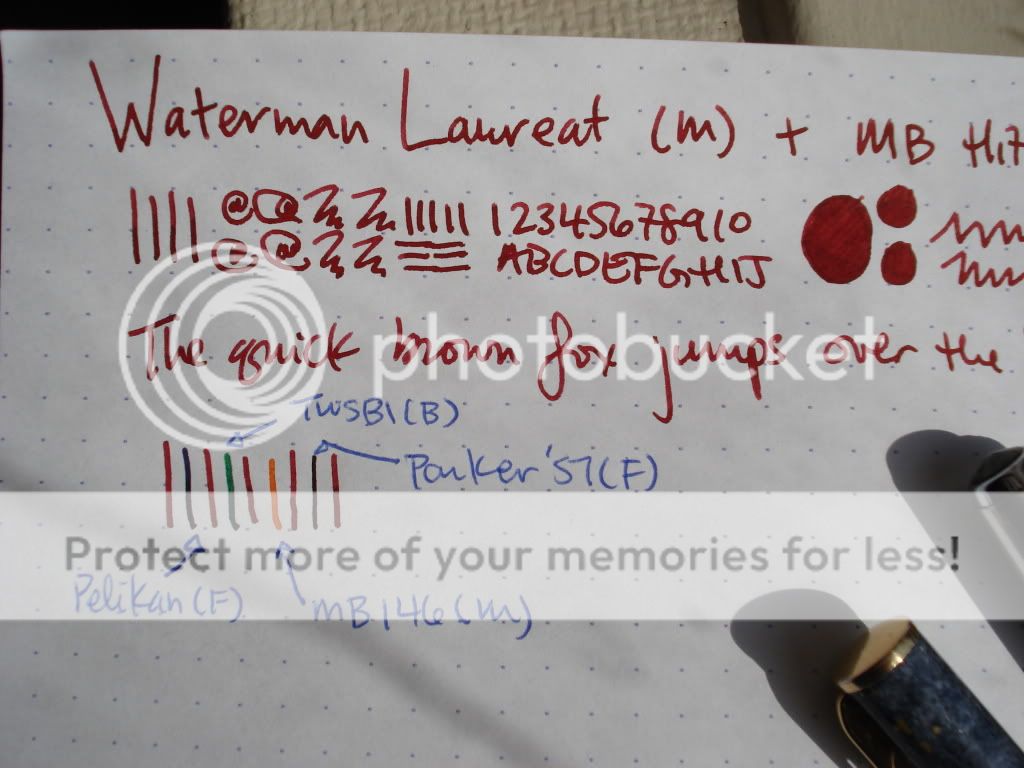 Waterman Laureat (M) + MB Hit
1 2 3 4 5 6 7 8 9 10
ABCDEFGHIJ
The quick brown fox jumps over the
photobucket
TWSBI (B)
Parker '51 (F)
Protect more of your memories for less!
Pelikan (F)
MB 146 (M)